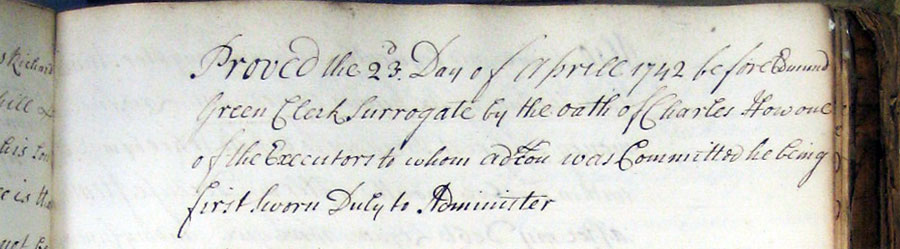 Richard
Proved the 23.^d Day of Aprill 1742 before Edmund
Green Clerk Surrogate by the oath of Charles How one
of the Executors to whom ad^con was Committed he being
first Sworn Duly to Administer